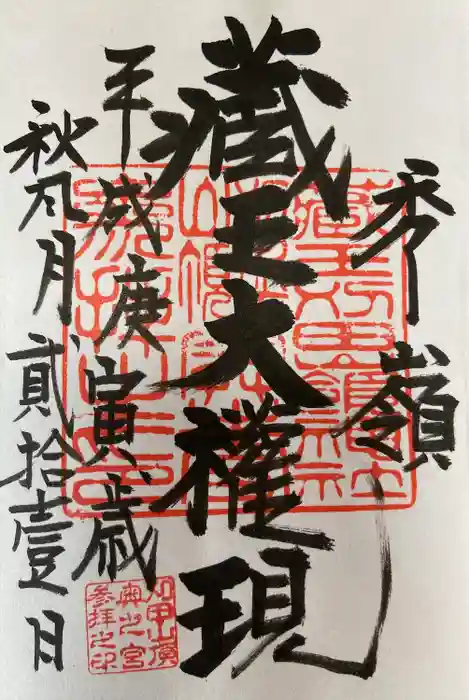 秀嶺
蔵王大權現
平成庚寅歳
秋風月貳拾壹日
刈田嶺
奥之宮
参拝之印